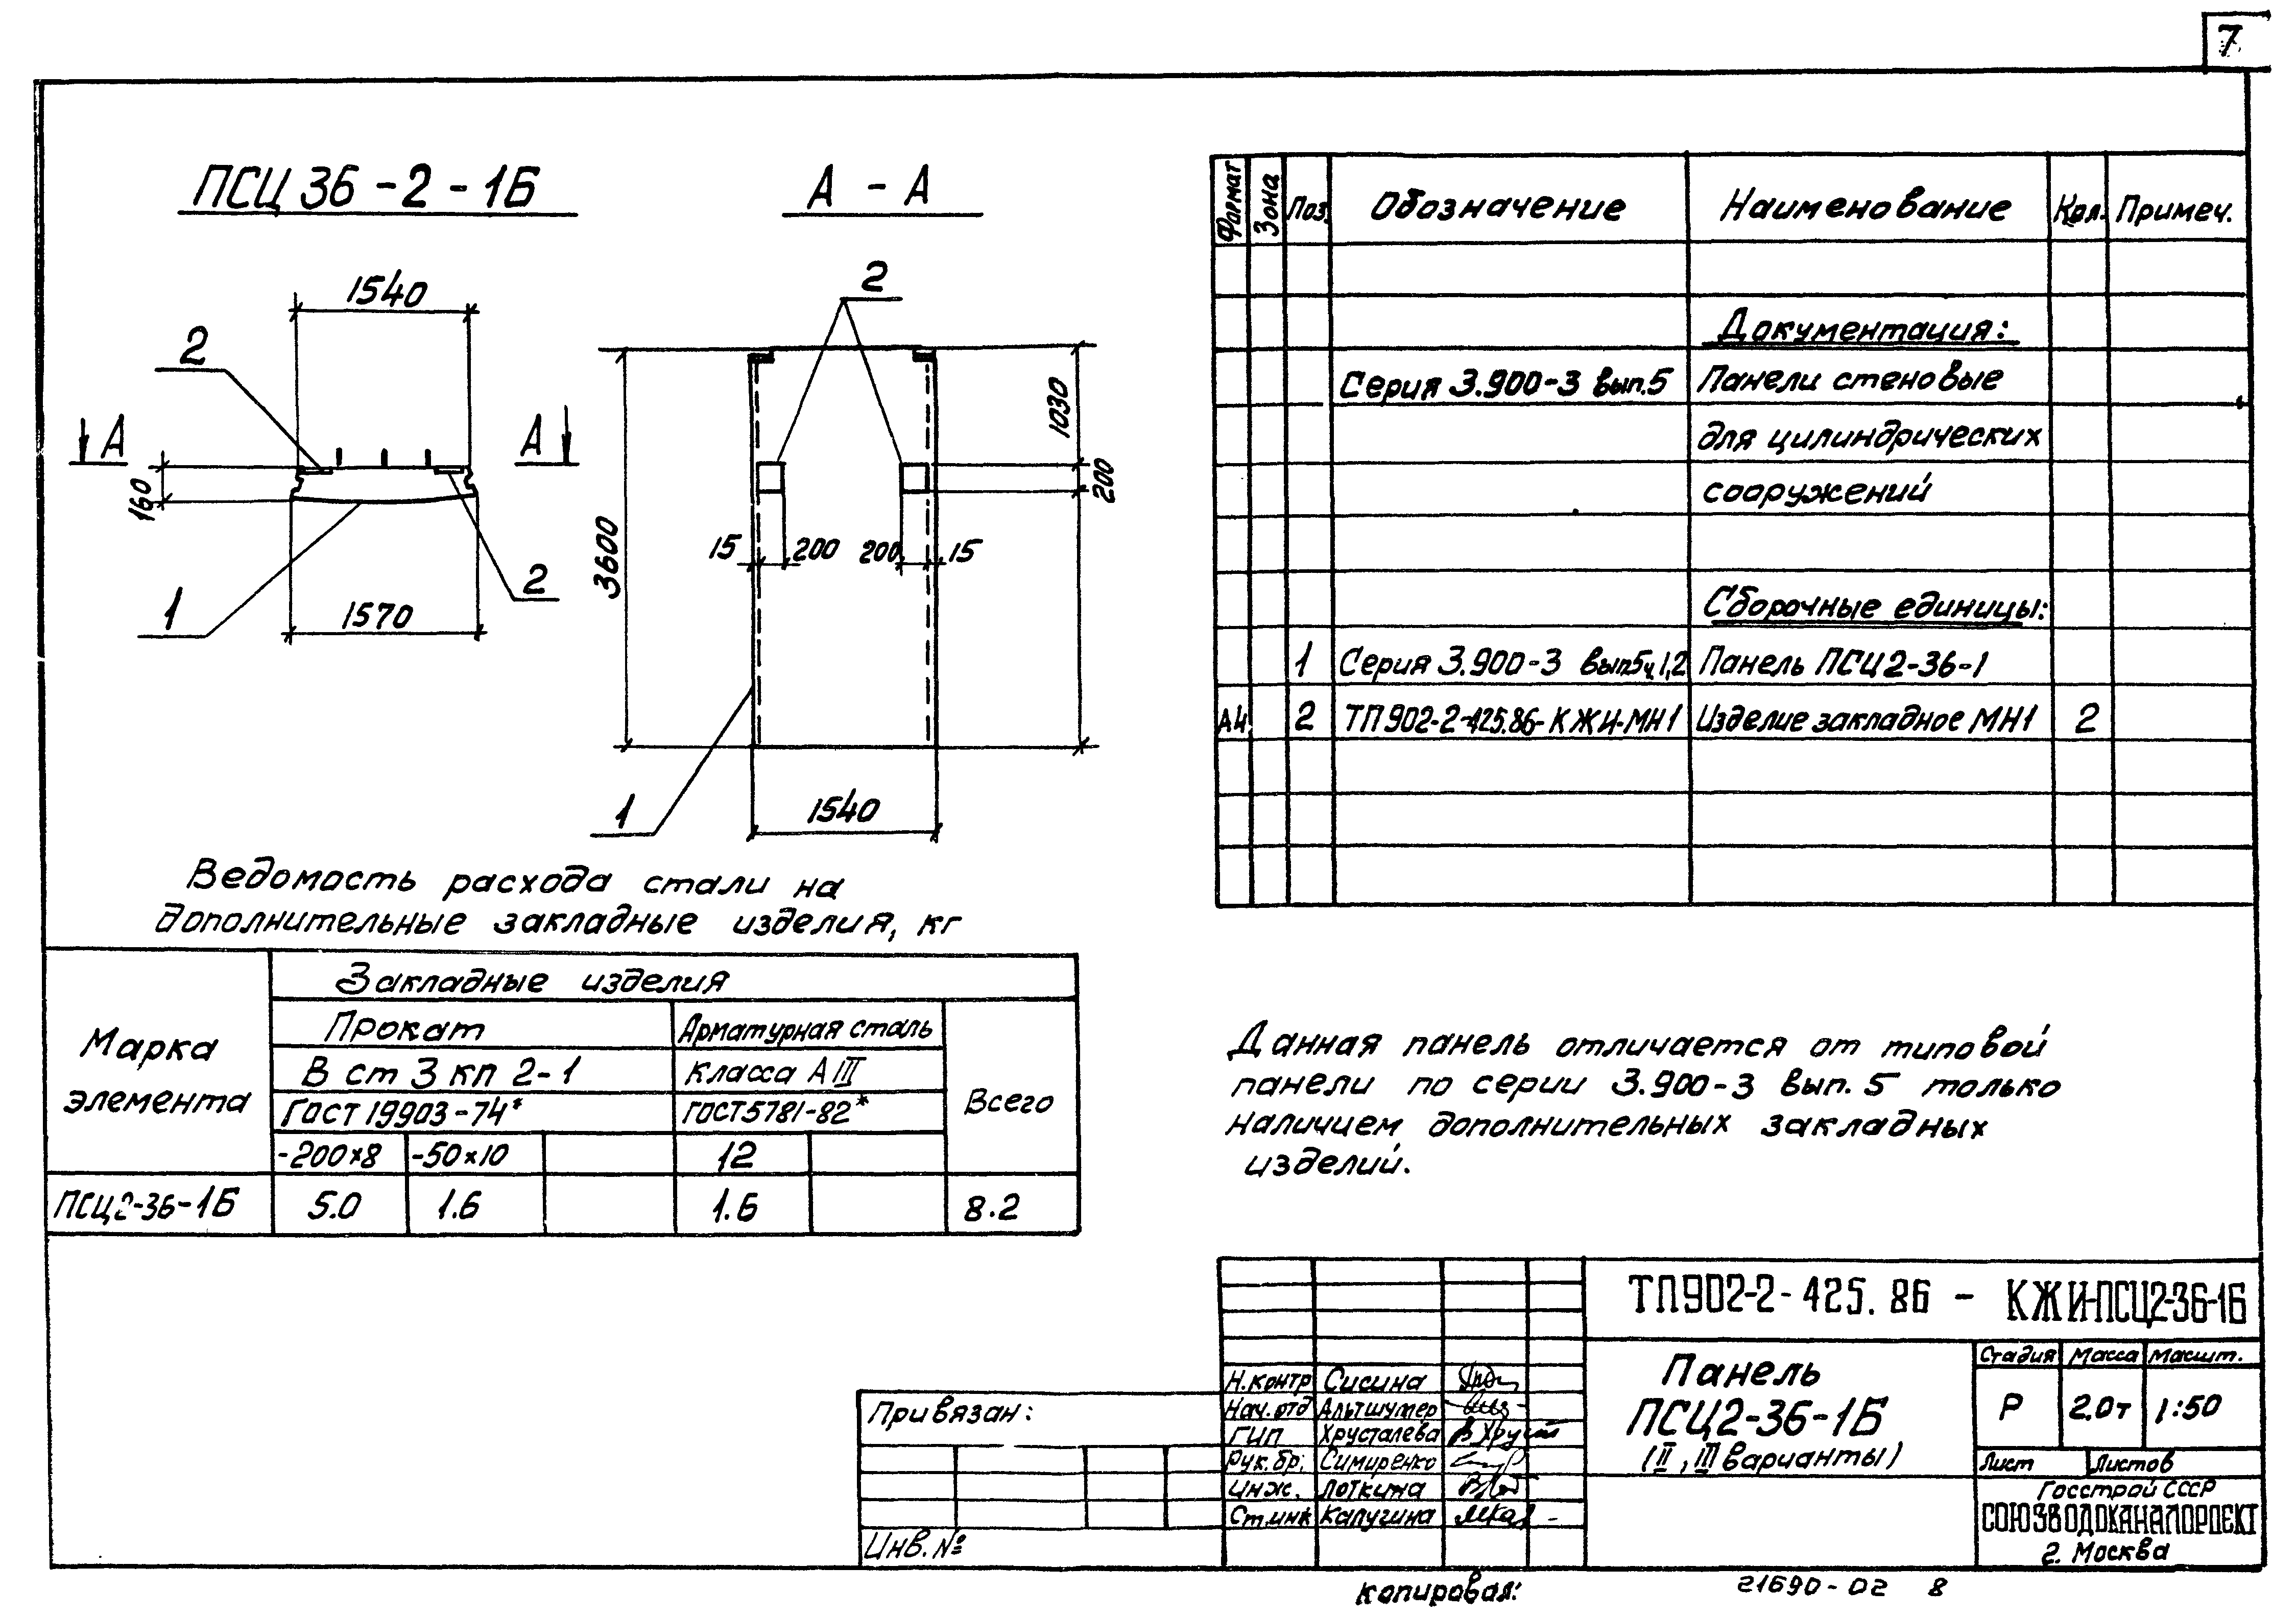 7
ПСЦ 36-2-1Б
А - А
1540
2
А
А
160
1
1570
2
2
3600
1030
200
15
200
200
15
1
1540
Формат Зона Поз. Обозначение Наименование Кол. Примеч.
Документация:
Серия 3.900-3 вып.5 Панели стеновые
для цилиндрических
сооружений
Сборочные единицы:
1 Серия 3.900-3 вып.5ч.1,2 Панель ПСЦ2-36-1
А4 2 ТП902-2-425.86-КЖИ-МН1 Изделие закладное МН1 2
Ведомость расхода стали на
дополнительные закладные изделия, кг
Марка
элемента
Закладные изделия
Прокат Арматурная сталь
В ст 3 кп 2-1 класса А III
Гост 19903-74* ГОСТ 5781-82*
Всего
-200×8 -50×10 12
ПСЦ2-36-1Б 5.0 1.6 1.6 8.2
Данная панель отличается от типовой
панели по серии 3.900-3 вып. 5 только
наличием дополнительных закладных
изделий.
ТП902-2-425.86 - КЖИ-ПСЦ2-36-1Б
Панель
ПСЦ2-36-1Б
(II, III варианты)
Стадия Масса Масшт.
Р 2.0т 1:50
Лист Листов
Госстрой СССР
СОЮЗВОДОКАНАЛПРОЕКТ
г. Москва
Н.контр Сисина
Нач.отд Альтшулер
ГИП Хрусталева
Рук.бр. Симиренко
Инж. Лоткина
Ст.инж Калугина
Привязан:
Инв. №
Копировал:
21690-02 8